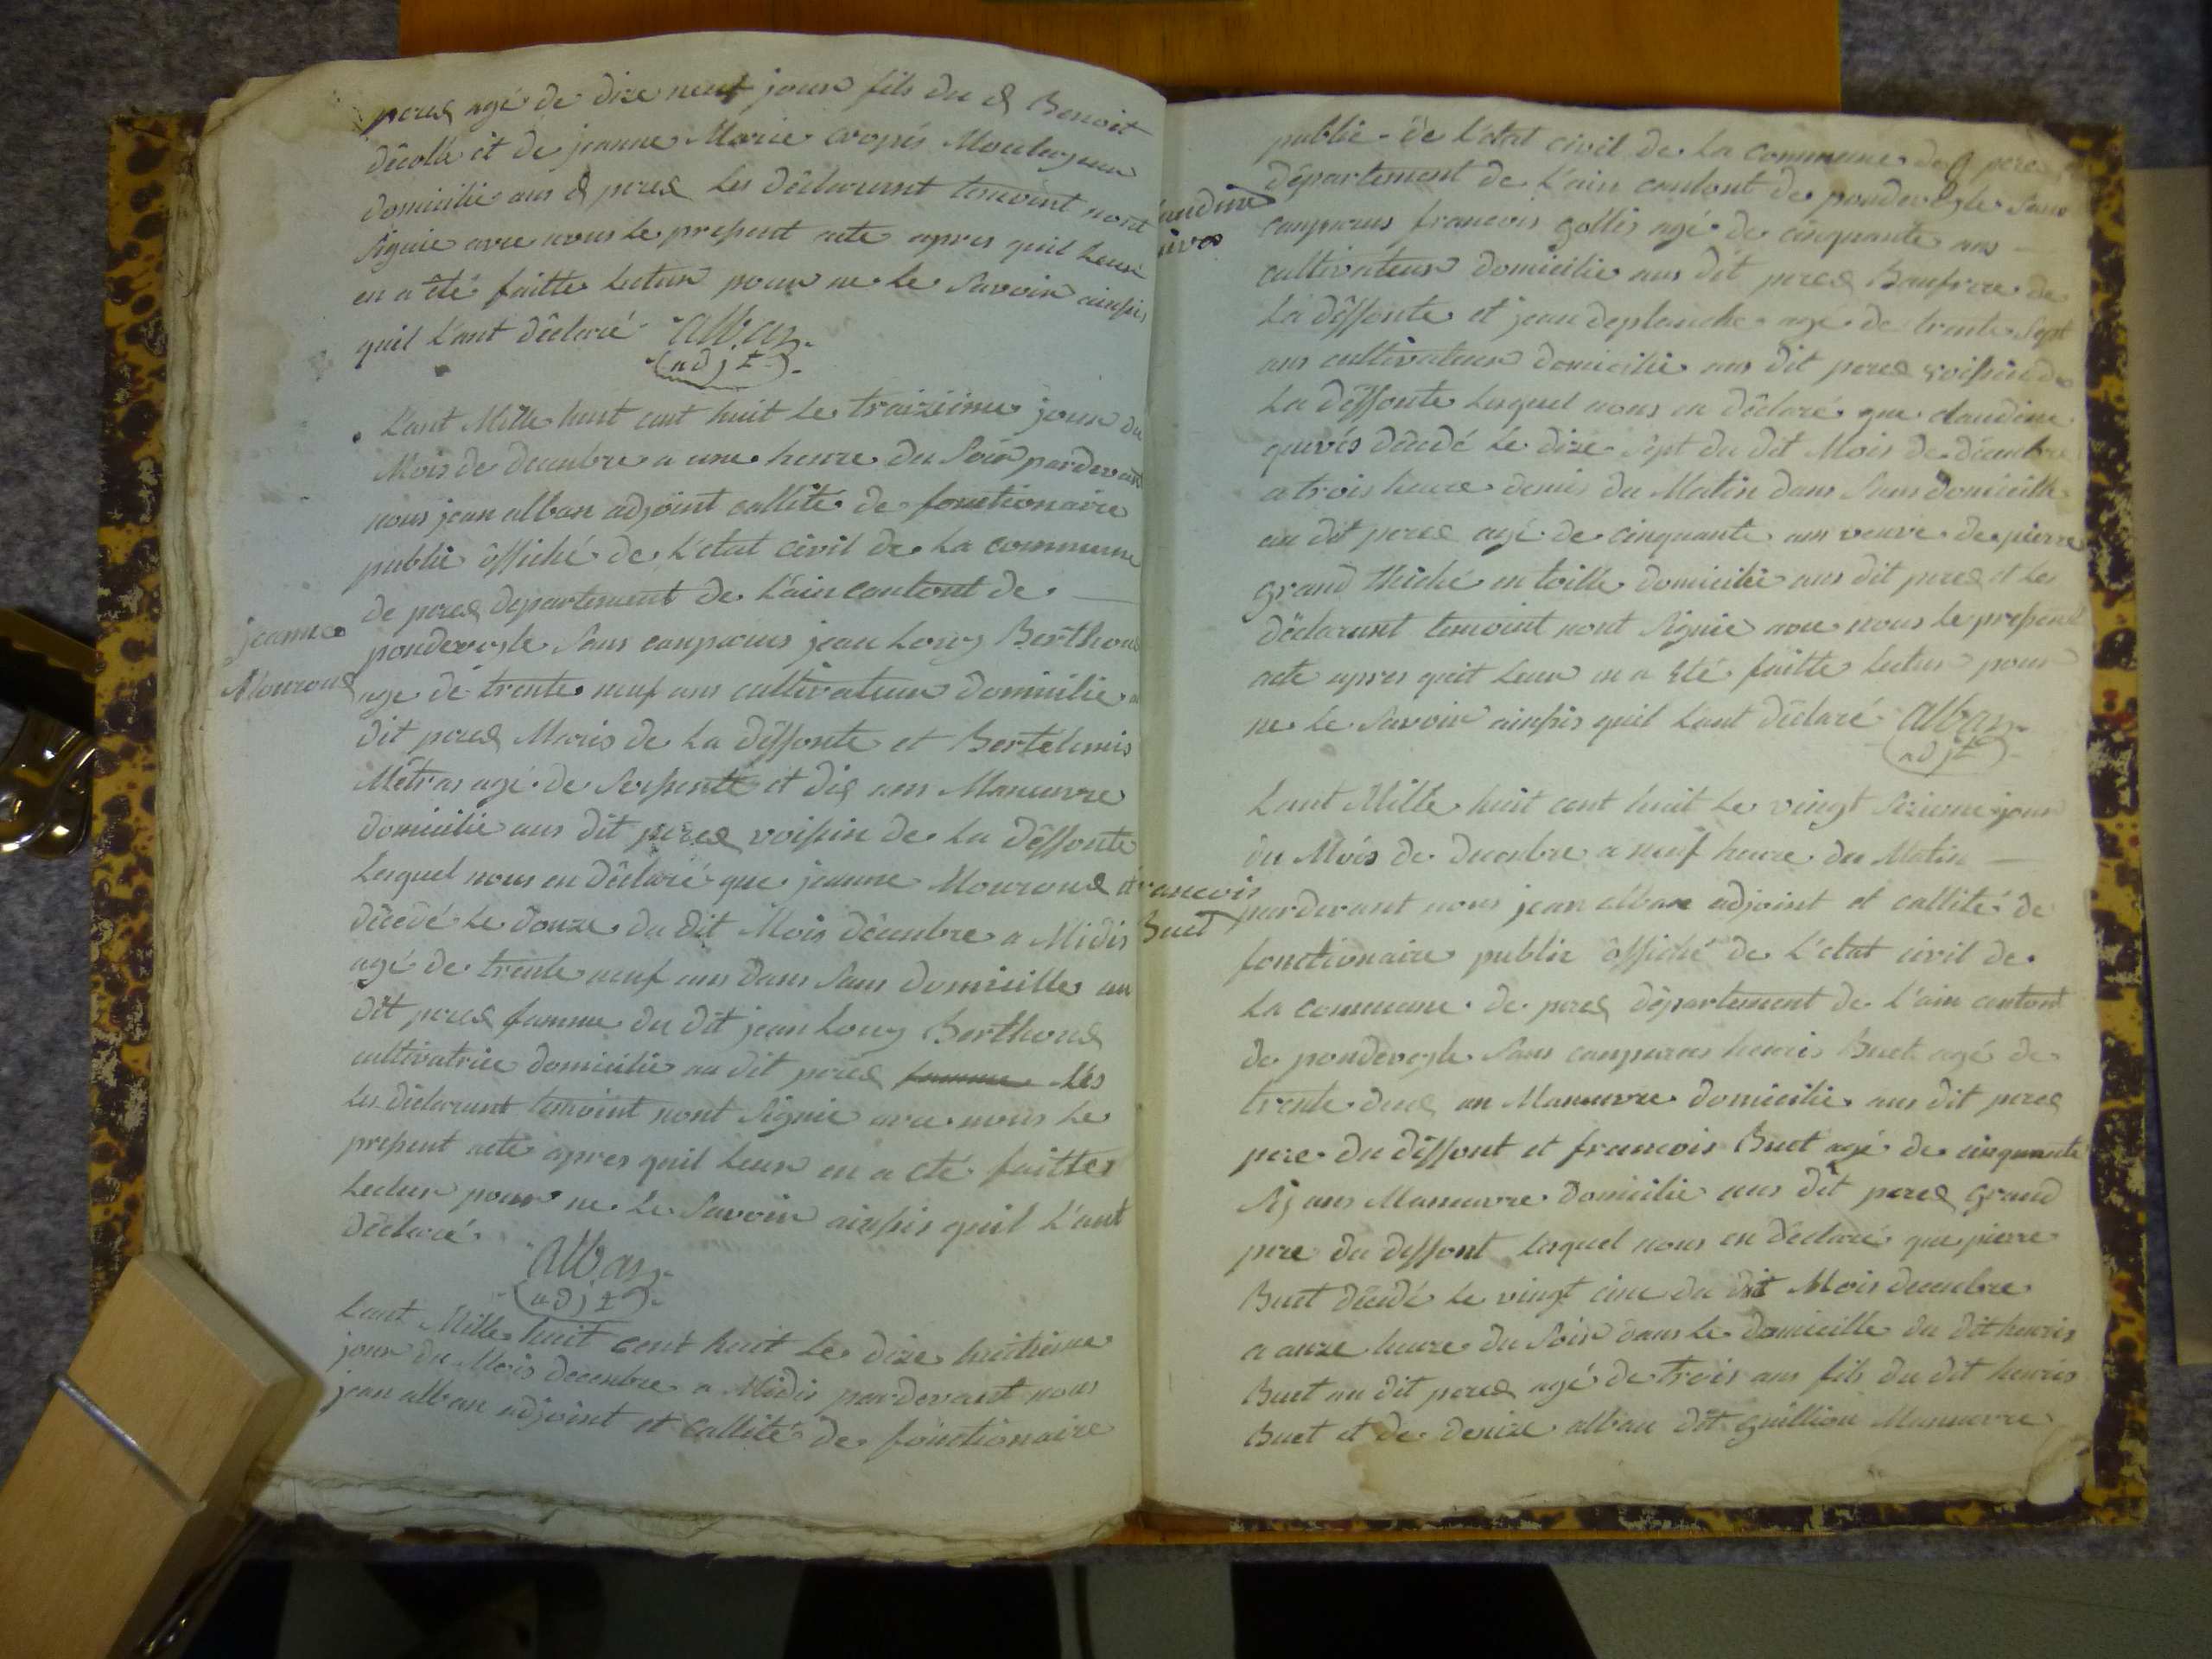 perex agé de dixe neuf jour fils du d Benoit
décolé et de jeanne Marie
domicilie aus d perex Les déclarant temoint nont
signie avec nous le present acte apres quil Leur
en a été faitte Lectur pour ne le Savoir ainssis
quil L'ant déclaré alban
(adjt)
L'ant Mille huit cent huit Le traizieme jour du
Mois de decenbre a une heure du Soir pardevant
nous jean alban adjoint callité de fonctionaire
public officié de L'état civil de La commune
de perex departement de L'ain cantont de
pondevegle Sans conparus jean Louy Berthoux
jeanne
Mouroux
age de trente neuf ans cultivateur domicilie au
dit perex Maris de La deffonte et Bertélemis
Métras agé de Soissente et dix ans Maneuvre
domicilie aus dit perex voissin de La deffonte
Lesquel nous en déclaré que jeanne Mouroux
décédé Le douze du dit Mois décenbre a Midis
agé de trente neuf ans dans Sans domicille au
dit perex famme du dit jean Louy Berthoux
cultivatrice domicilie au dit perex famme Les
Les déclarant temoint nont Signie avec nous Le
present acte apres quil Leur en a été faittes
Lectur pour ne Le Savoir ainssis quil L'ant
déclaré
alban
(adjt)
Lant Mille huit cent huit Le dixe huitieme
jour du Mois decenbre a Midis pardevant nous
jean alban adjoint et callité de fonctionaire
public de L'état civil de La commune de perex
département de L'ain cantont de pondevegle Sans
conparus francois gollis agé de cinquante ans
cultivateur domicilie aus dit perex Baufrere de
La déffonte et jean deplanche agé de trente Sept
ans cultivateur domicilie aus dit perex voissin de
La déffonte Lesquel nous en déclaré que claudine
quivés décédé Le dixe Sept du dit Mois de décenbre
a trois heure demis du Matin dans Sans domicille
au dit perex agé de cinquante ans veuve de pierre
grand thiché en toille domicilie aus dit perex et Les
déclarant temoint nont Signie avec nous Le present
acte apres quil Leur en a été faitte Lectur pour
ne Le Savoir ainssis quil L'ant déclaré alban
(adjt)
Lant Mille huit cent huit Le vingt Sizieme jour
du Mois de decenbre a neuf heure du Matin
francois
Buet
pardevant nous jean alban adjoint et callité de
fonctionaire public officié de L'état civil de
La commune de perex département de L'ain cantont
de pondevegle Sans conparus henris Buet agé de
trente deux an Maneuvre domicilie aus dit perex
pere du déffont et francois Buet agé de cinquante
Six ans Maneuvre domicilie aus dit perex grand
pere du deffont Lesquel nous en déclaré que pierre
Buet décédé Le vingt cinc du dit Mois decenbre
a onze heure du Soir dans Le domicille du dit henris
Buet au dit perex agé de trois ans fils du dit henris
Buet et de denize alban dit guillion Maneuvre